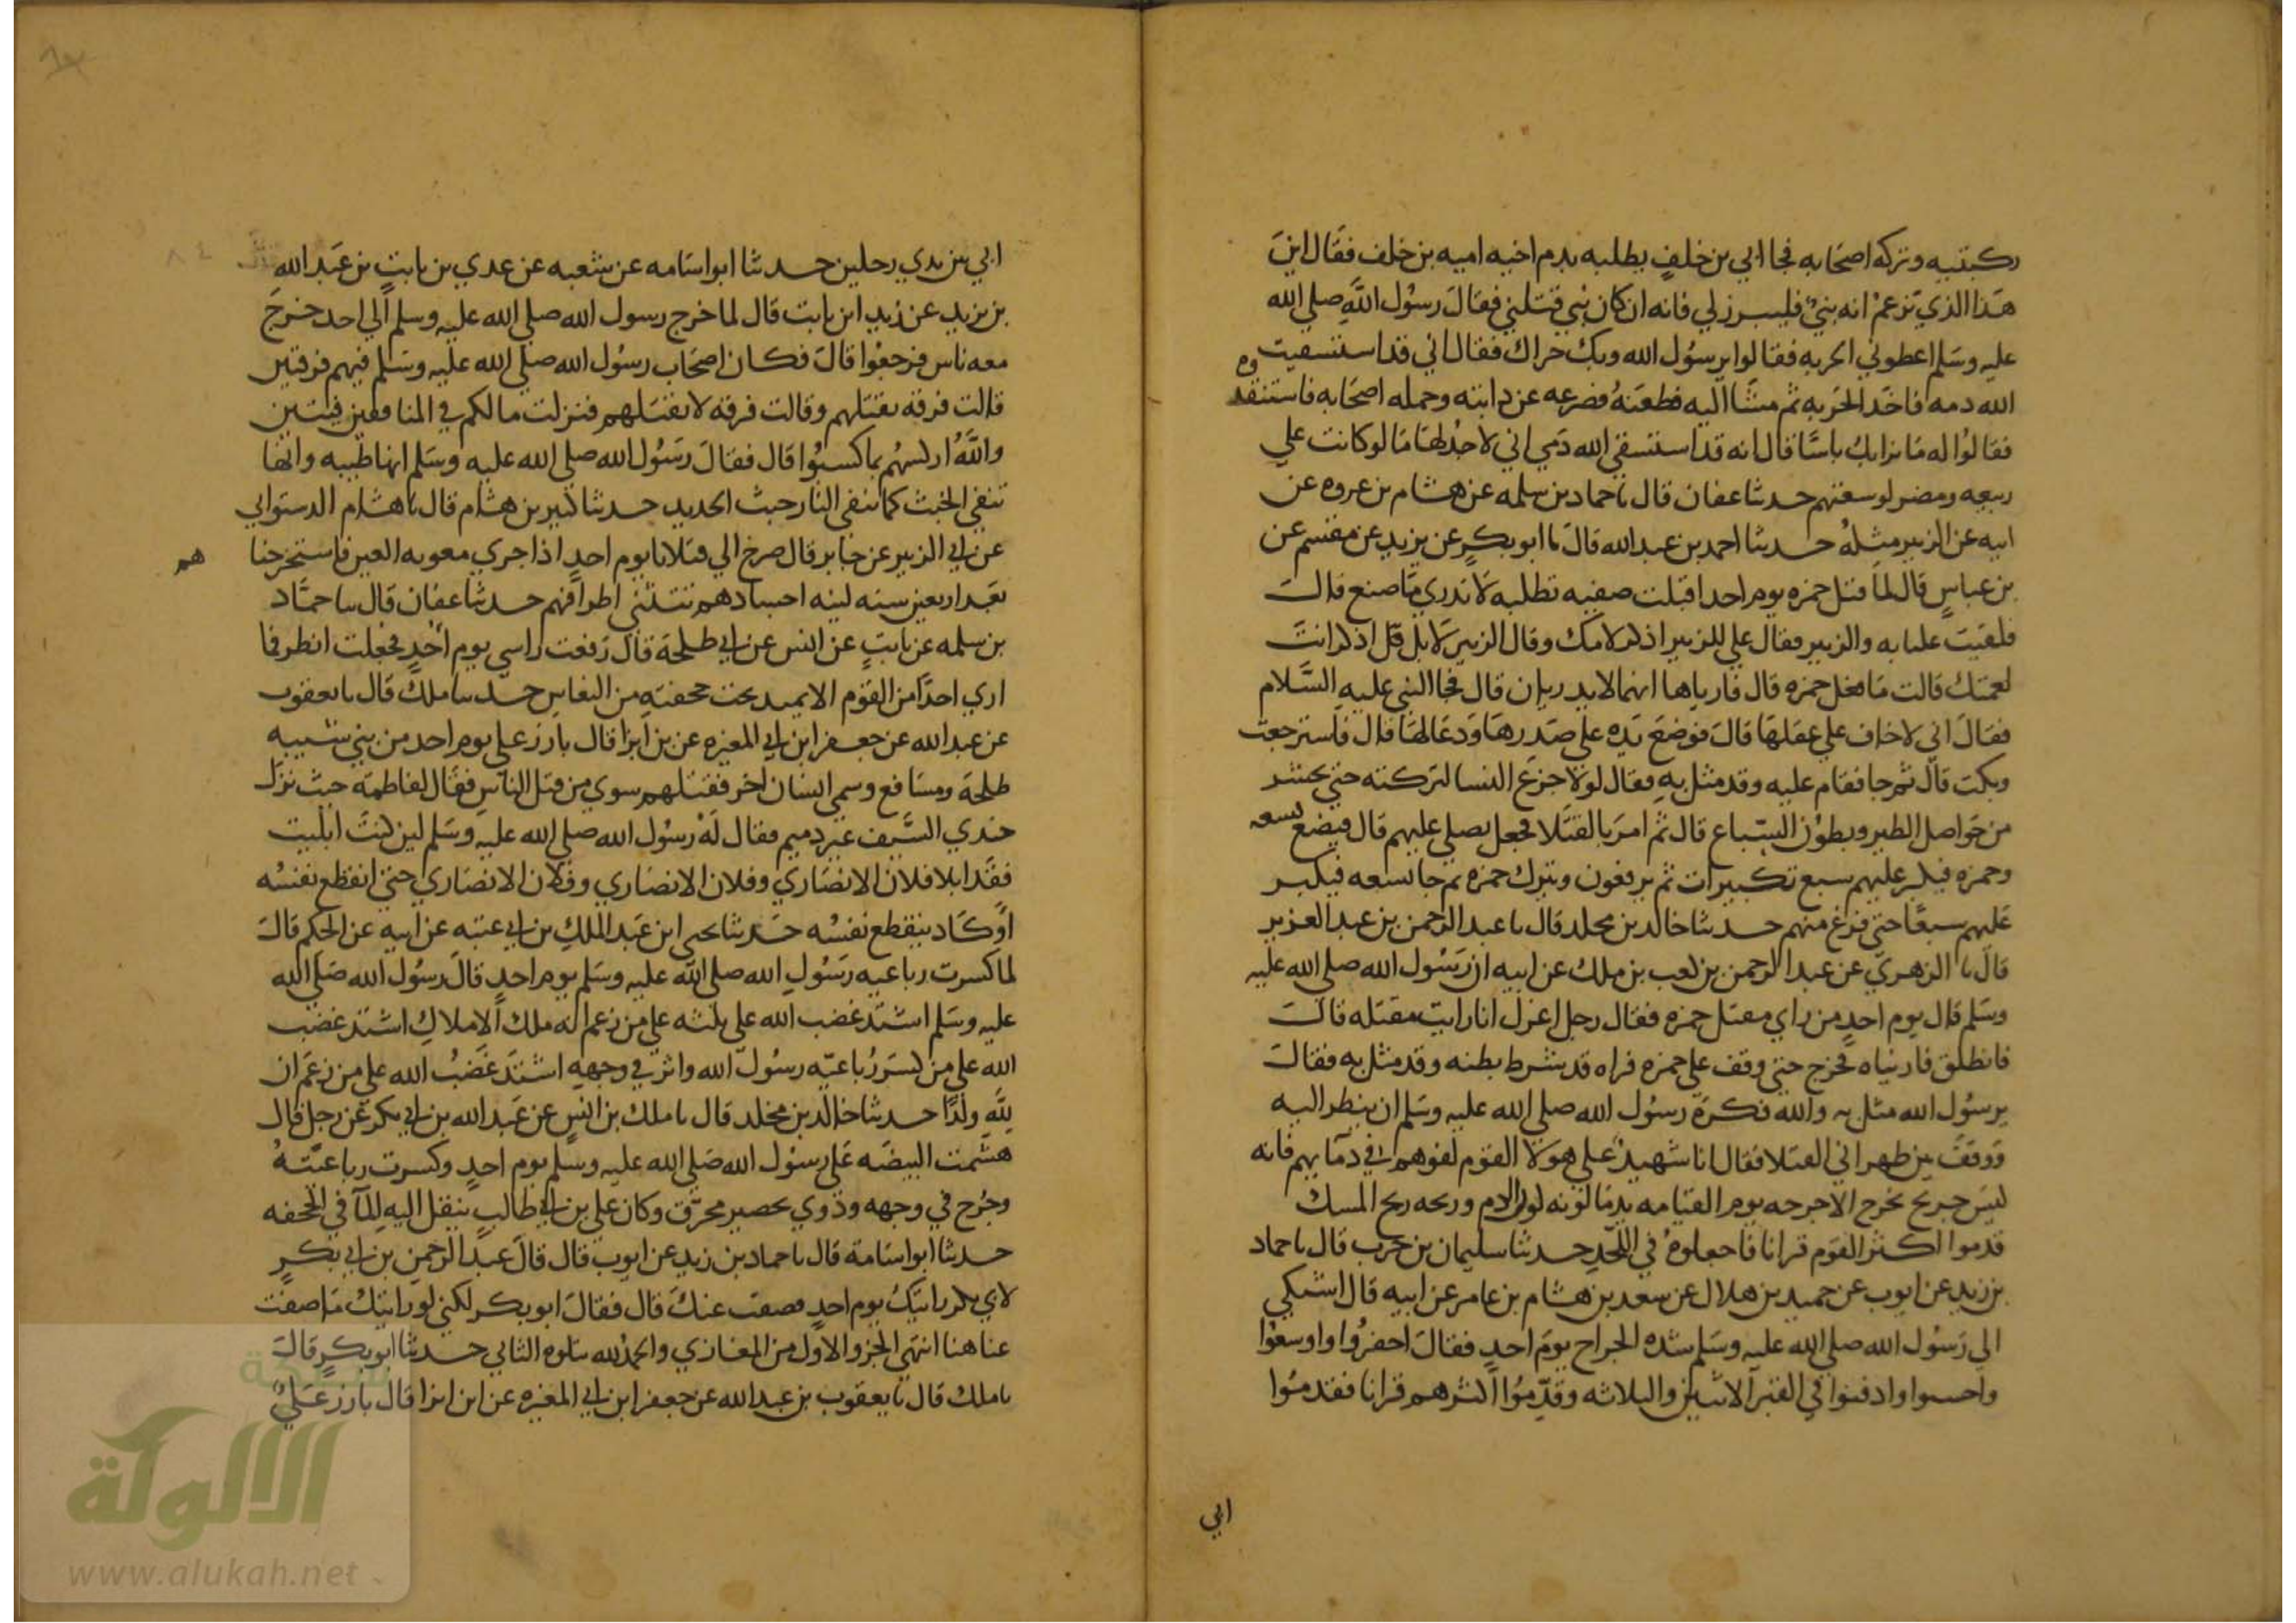 ركبتيه وتركه اصحابه فجا ابي بن خلف يطلبه بدم اخيه اميه بن خلف فقال اين
هذا الذي تزعم انه نبي فليبرز لي فانه ان كان نبي قتلني فقال رسول الله صلى الله
عليه وسلم اعطوني الحربه فقالوا يرسول الله وبك حراك فقال اني قد استسقيت
الله دمه فاخذ الحربه ثم مشا اليه فطعنه فصرعه عن دابته وحمله اصحابه فاستنقذوه
فقالوا له ما نرا بك باسا قال انه قد استسقي الله دمي اني لاجد لها ما لو كانت علي
ربيعه ومضر لوسعتهم حدثنا عفان قال نا حماد بن سلمه عن هشام بن عروه عن
ابيه عن الزبير مثله حدثنا احمد بن عبدالله قال نا ابو بكر عن يزيد عن مقسم عن
بن عباس قال لما قتل حمزه يوم احد اقبلت صفيه تطلبه لا تدري ما صنع قال
فلقيت عليا به والزبير فقال علي للزبير اذكر لامك وقال الزبير لا بل قل اذكر انت
لعمتك قالت ما فعل حمزه قال فارياها انهما لا يدريان قال فجا النبي عليه السلام
فقال اني لاخاف علي عقلها قال فوضع يده على صدرها ودعا لها قال فاسترجعت
وبكت قال ثم جا فقام عليه وقد مثل به فقال لولا جزع النسا لتركته حتي يحشر
من حواصل الطير وبطون السباع قال ثم امر بالقتلا فجعل يصلي عليهم قال فيضع تسعه
وحمزه فيكبر عليهم سبع تكبيرات ثم يرفعون ويترك حمزه ثم جا بتسعه فيكبر
عليهم سبعا حتي فرغ منهم حدثنا خالد بن مخلد قال نا عبد الرحمن بن عبد العزيز
قال نا الزهري عن عبد الرحمن بن كعب بن ملك عن ابيه ان رسول الله صلى الله عليه
وسلم قال يوم احد من راي مقتل حمزه فقال رجل اعزل انا رايت مقتله قال
فانطلق فارنياه فخرج حتي وقف علي حمزه فراه قد شرط بطنه وقد مثل به فقال
يرسول الله مثل به والله فكره رسول الله صلى الله عليه وسلم ان ينظر اليه
ووقف بين ظهراني القتلا فقال انا شهيد علي هولا القوم لفوهم في دمايهم فانه
ليس جريح يجرح الا جرحه يوم القيامه يدما لونه لون الدم وريحه ريح المسك
قدموا اكثر القوم قرانا فاجعلوه في اللحد حدثنا سليمان بن حرب قال نا حماد
بن زيد عن ايوب عن حميد بن هلال عن سعد بن هشام بن عامر عن ابيه قال اشتكي
الي رسول الله صلى الله عليه وسلم شده الجراح يوم احد فقال احفروا واوسعوا
واحسنوا وادفنوا في القبر الاثنين والثلاثه وقدموا اكثرهم قرانا فقدموا
ابي
ابي بين يدي رجلين حدثنا ابو اسامه عن شعبه عن عدي بن ثابت بن عبد الله
بن يزيد عن زيد ابن ثابت قال لما خرج رسول الله صلى الله عليه وسلم الي احد خرج
معه ناس فرجعوا قال فكان اصحاب رسول الله صلى الله عليه وسلم فيهم فرقتين
قالت فرقه نقتلهم وقالت فرقه لا نقتلهم فنزلت مالكم في المنافقين فيتين
والله اركسهم بما كسبوا قال فقال رسول الله صلى الله عليه وسلم انها طيبه وانها
تنفي الخبث كما تنفي النار خبث الحديد حدثنا كثير بن هشام قال نا هشام الدستوايي
عن ابي الزبير عن جابر قال صرخ الي قتلانا يوم احد اذا جري معويه العين فاستخرجنا هم
بعد اربعين سنه لينه اجسادهم تتثني اطرافهم حدثنا عفان قال نا حماد
بن سلمه عن ثابت عن انس عن ابي طلحة قال رفعت راسي يوم احد فجعلت انظر فما
اري احدا من القوم الا يميد تحت حجفته من النعاس حدثنا ملك قال نا يعقوب
عن عبد الله عن جعفر ابن ابي المغيره عن بن ابزا قال بارز علي يوم احد من بني شيبه
طلحة ومسافع وسمي انسان اخر فقتلهم سوي من قتل الناس فقال لفاطمه حيث نزل
خذي السيف غير ذميم فقال له رسول الله صلى الله عليه وسلم لين كنت ابليت
فقد ابلا فلان الانصاري وفلان الانصاري وفلان الانصاري حتي انقطع نفسه
او كاد ينقطع نفسه حدثنا يحيي ابن عبد الملك بن ابي عتبه عن ابيه عن الحكم قال
لما كسرت رباعيه رسول الله صلى الله عليه وسلم يوم احد قال رسول الله صلى الله
عليه وسلم اشتد غضب الله علي ثلثه علي من زعم انه ملك الاملاك اشتد غضب
الله علي من كسر رباعيه رسول الله واثر في وجهه اشتد غضب الله علي من زعم ان
لله ولدا حدثنا خالد بن مخلد قال نا ملك بن انس عن عبد الله بن ابي بكر عن رجل قال
هشمت البيضه على رسول الله صلى الله عليه وسلم يوم احد وكسرت رباعيته
وجرح في وجهه ودوي بحصير محرق وكان علي بن ابي طالب ينقل اليه الما في الحجفه
حدثنا ابو اسامة قال نا حماد بن زيد عن ايوب قال قال عبد الرحمن بن ابي بكر
لابي بكر رايتك يوم احد فصفت عنك قال فقال ابو بكر لكني لو رايتك ما صفت
عنا هنا انتهي الجزو الاول من المغازي والحمد لله يتلوه الثاني حدثنا ابو بكر قال
نا ملك قال نا يعقوب بن عبد الله عن جعفر ابن ابي المغيره عن ابن ابزا قال بارز علي
الألوكة
www.alukah.net